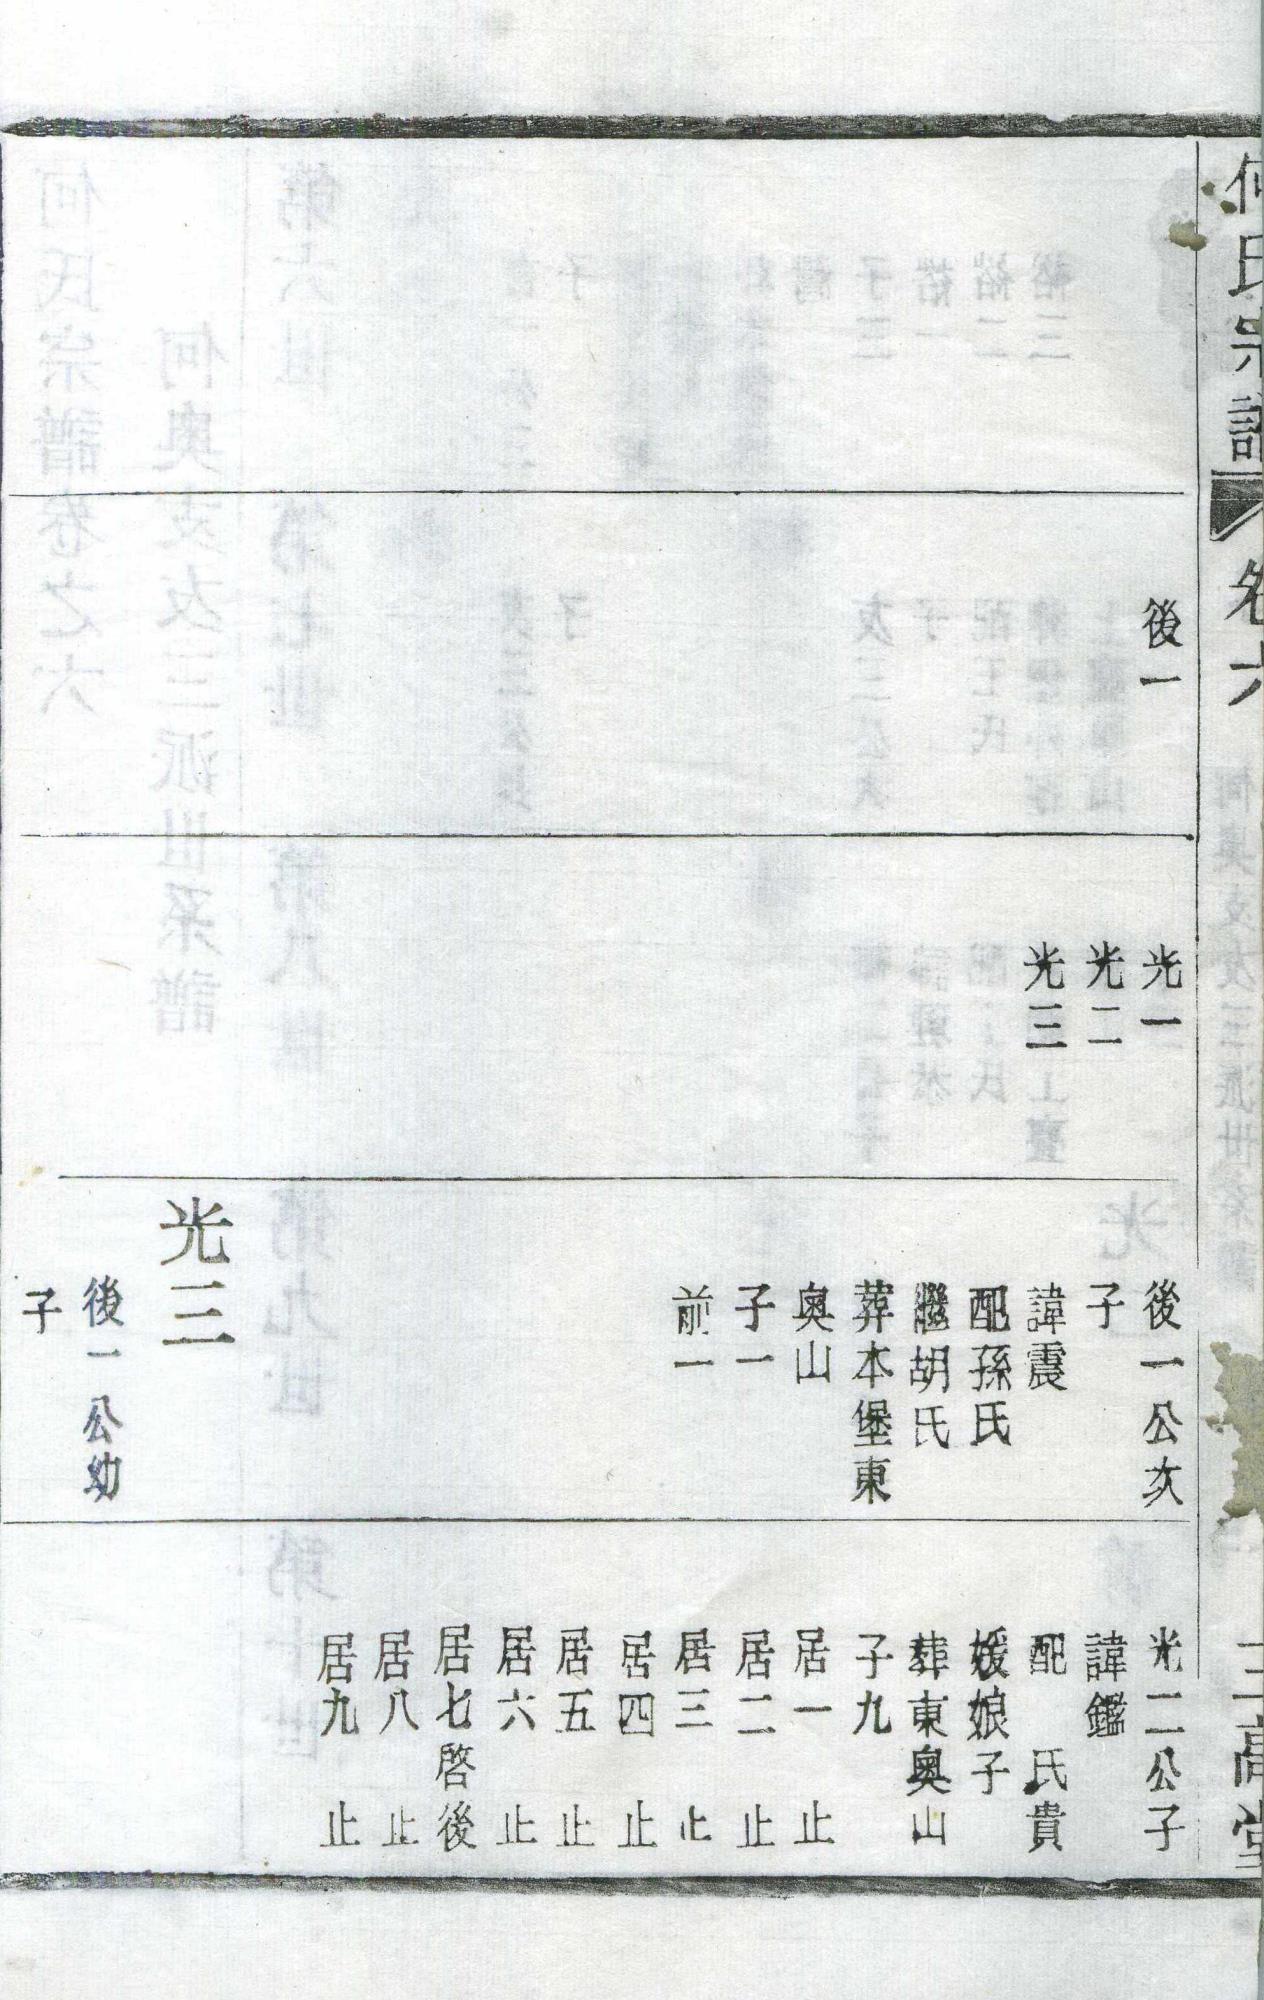 何氏宗譜
卷六
三高堂
後一
光一
光二
光三
後一公次
子
諱震
配孫氏
繼胡氏
葬本堡東
奥山
子一
前一
光三
後一公幼
子
光二公子
諱鑑
配　氏貴
媛娘子
葬東奥山
子九
居一　止
居二　止
居三　止
居四　止
居五　止
居六　止
居七啓後
居八　止
居九　止